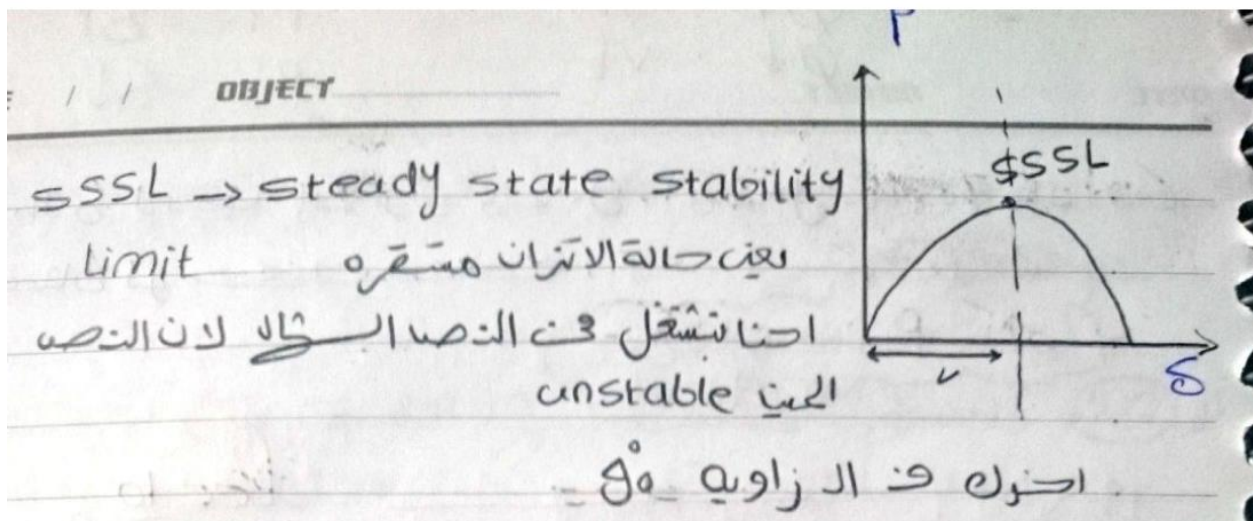 P
OBJECT
SSSL
SSSL → steady state stability
Limit يعنى حالة الاتزان مستقره
احنا نشتغل فى النص الشمال لان النص
اليمين unstable
δ
اخرك فى الزاويه = 90°